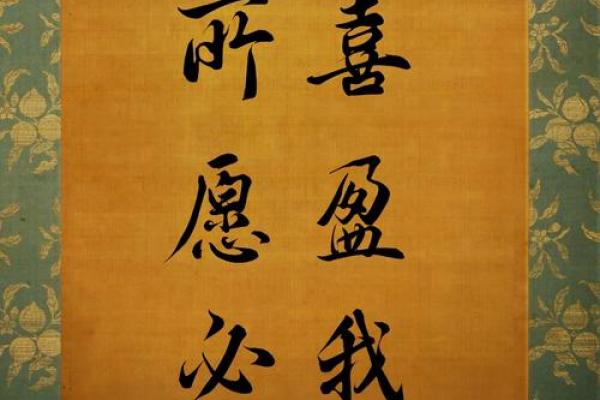 喜盈我
所愿必